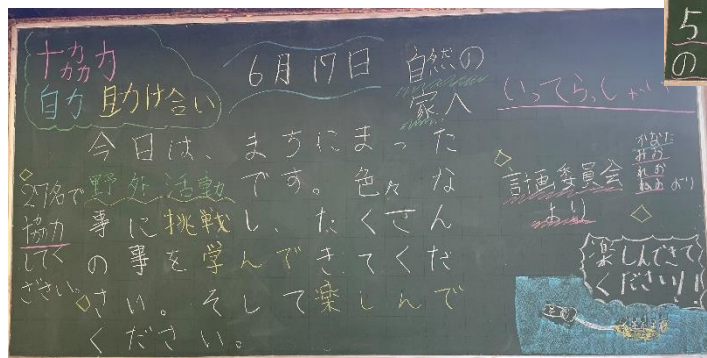 協力
自力 助け合い
6月17日
自然の
家へ
いってらっしゃ
5の
今日は、まちにまった
野処活動です。色々な
事に挑戦し、たくさん
の事を学んできてくだ
さい。そして楽しんで
ください。
27名で
協力
してく
ださい。
計画委員会
より
より
楽しんできて
ください!!